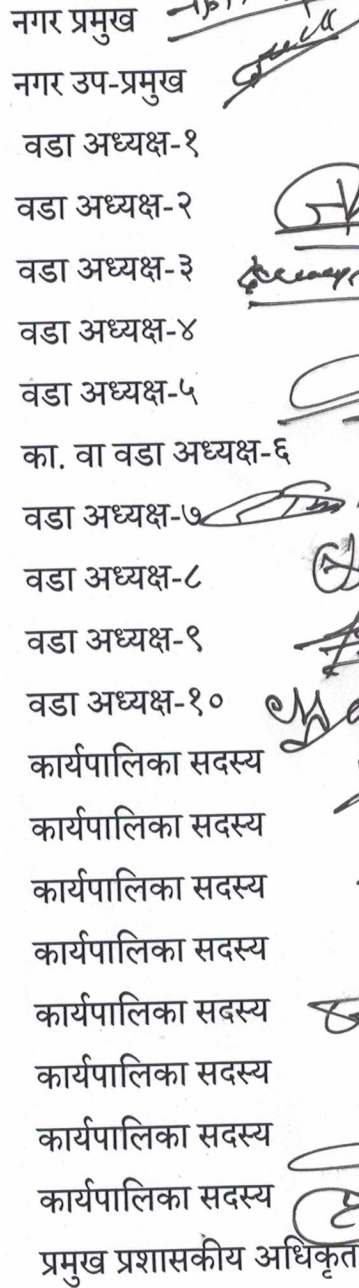 नगर प्रमुख
नगर उप-प्रमुख
वडा अध्यक्ष-१
वडा अध्यक्ष-२
वडा अध्यक्ष-३
वडा अध्यक्ष-४
वडा अध्यक्ष-५
का. वा वडा अध्यक्ष-६
वडा अध्यक्ष-७
वडा अध्यक्ष-८
वडा अध्यक्ष-९
वडा अध्यक्ष-१०
कार्यपालिका सदस्य
कार्यपालिका सदस्य
कार्यपालिका सदस्य
कार्यपालिका सदस्य
कार्यपालिका सदस्य
कार्यपालिका सदस्य
कार्यपालिका सदस्य
कार्यपालिका सदस्य
प्रमुख प्रशासकीय अधिकृत